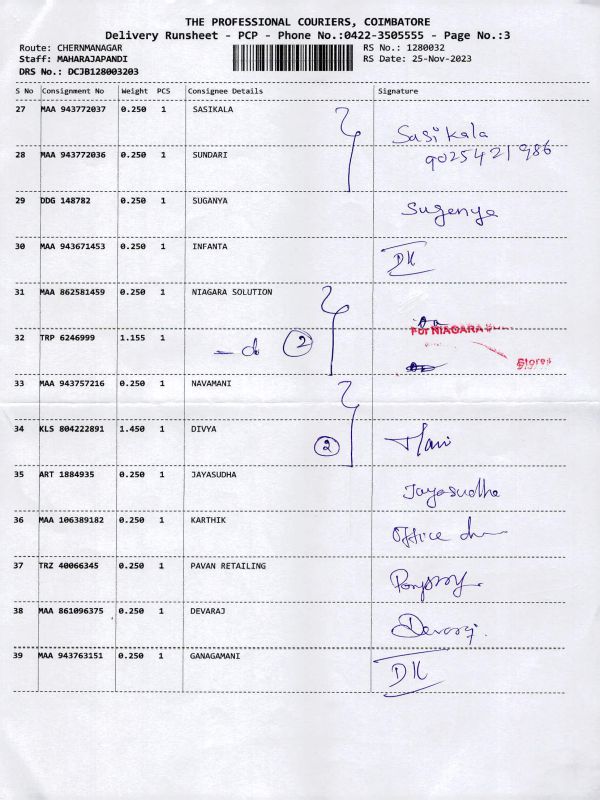 THE PROFESSIONAL COURIERS, COIMBATORE
Delivery Runsheet - PCP - Phone No.:0422-3505555 - Page No.:3
Route: CHERNMANAGAR RS No.: 1280032
Staff: MAHARAJAPANDI RS Date: 25-Nov-2023
DRS No.: DCJB128003203
S No Consignment No Weight PCS Consignee Details Signature
27 MAA 943772037 0.250 1 SASIKALA
Sasikala
28 MAA 943772036 0.250 1 SUNDARI
9025421986
29 DDG 148782 0.250 1 SUGANYA
Sugenya
30 MAA 943671453 0.250 1 INFANTA
DK
31 MAA 862581459 0.250 1 NIAGARA SOLUTION
For NIAGARA
32 TRP 6246999 1.155 1
do 2
Stores
33 MAA 943757216 0.250 1 NAVAMANI
34 KLS 804222891 1.450 1 DIVYA
2
35 ART 1884935 0.250 1 JAYASUDHA
Jayasudha
36 MAA 106389182 0.250 1 KARTHIK
Office
37 TRZ 40066345 0.250 1 PAVAN RETAILING
38 MAA 861096375 0.250 1 DEVARAJ
Devaraj.
39 MAA 943763151 0.250 1 GANAGAMANI
DK